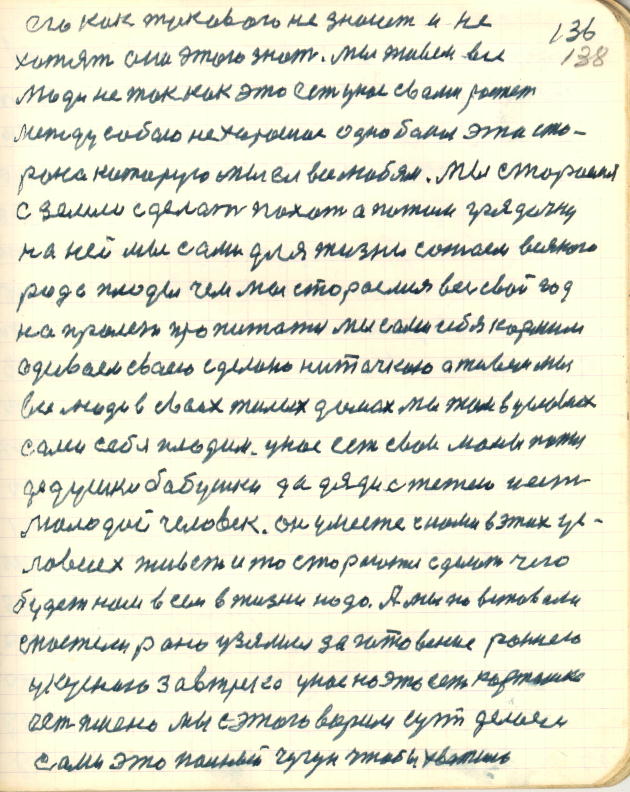 его как такового не знают и не
136
138
хотят они этого знат. мы живем все
люди не так как это ест у нас свами ростет
между собою нехорошое однобоки эта сто-
рона которую мы ей все любям. Мы стораемя
с земли сделат похот а потом грядочку
на ней мы сами для жизни сожаем всякого
рода плоды чем мы стораемия весь свой год
на пролет пропитат мы сами себя кормим
одеваем своею сделано ниточкою а живем мы
все люди в своих жилых домах мы там в условиях
сами себя плодим. у нас ест свои мамы папы
дедушки бабушки да дяди с тетею и ест
молодой человек. он уместе с нами в этих ус-
ловиех живет и то стораится сделат чего
будет нам всем в жизни надо. А мы повставали
спостели рано узялис за готовение раннего
укусного завтрего у нас на это ест картошка
ест пшено мы с этого варим суп делаем
сами это полный чугун чтобы хватило